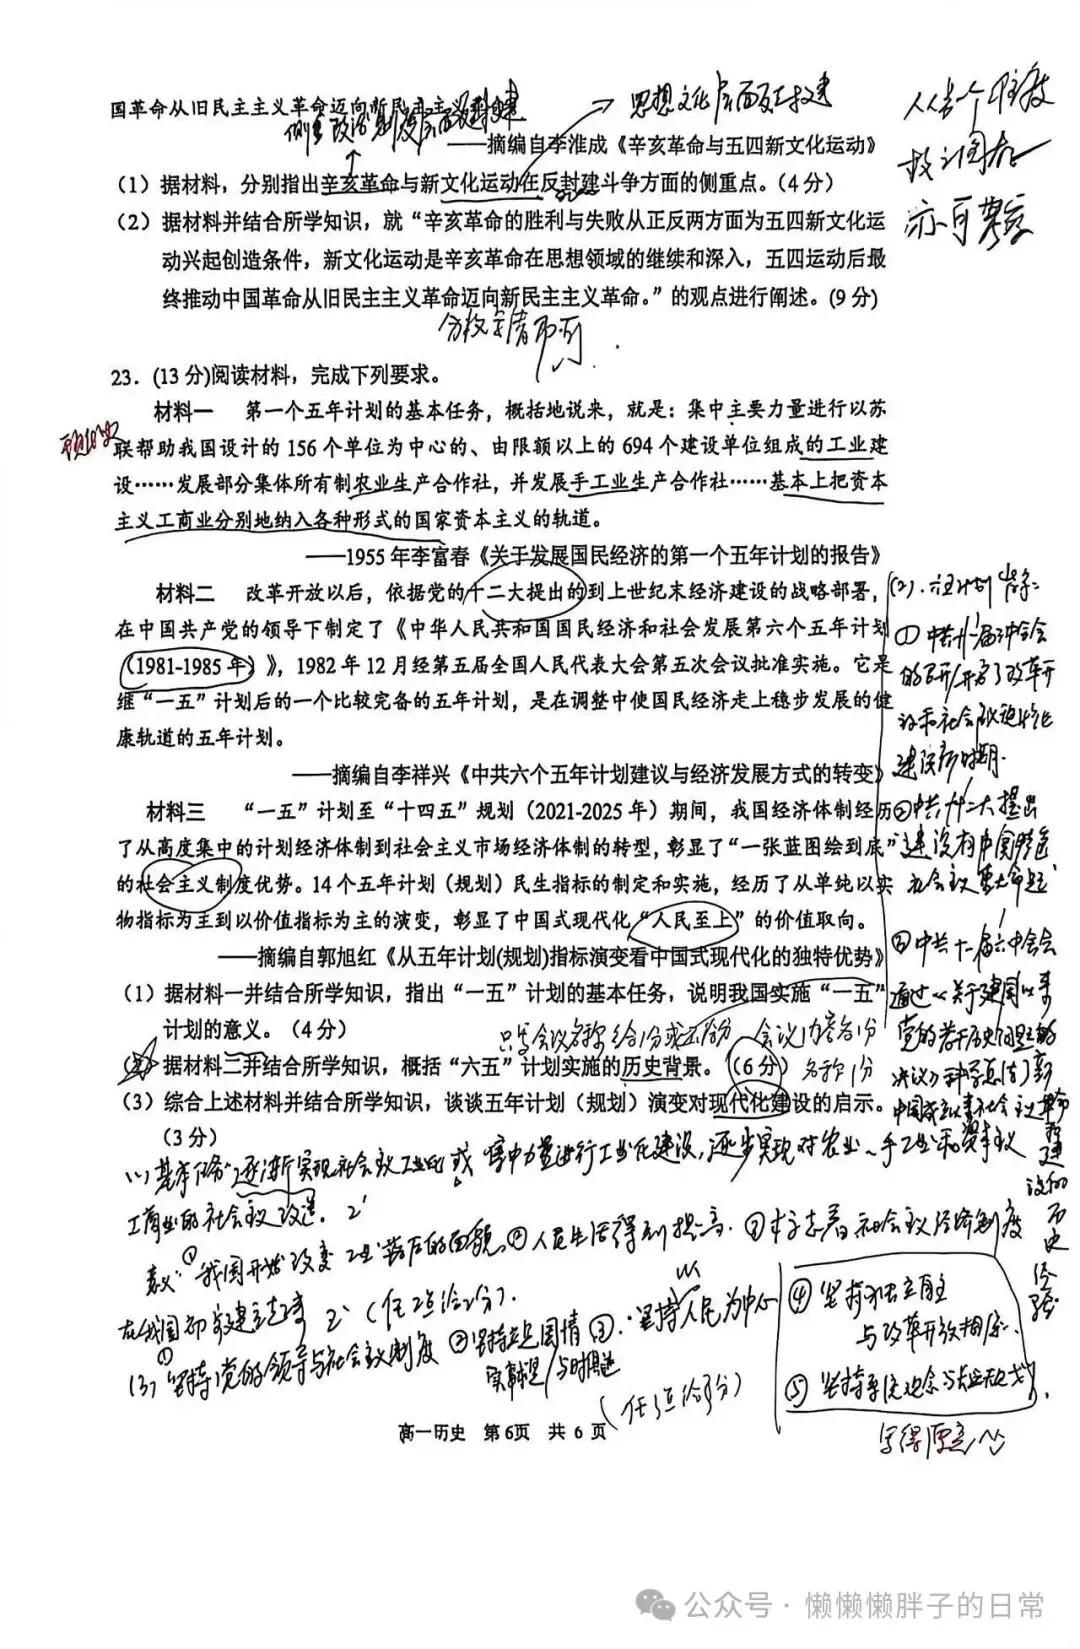 国革命从旧民主主义革命迈向新民主主义
侧重政治制度层面反封建
思想文化层面反封建
——摘编自李淮成《辛亥革命与五四新文化运动》
（1）据材料，分别指出辛亥革命与新文化运动在反封建斗争方面的侧重点。（4分）
（2）据材料并结合所学知识，就“辛亥革命的胜利与失败从正反两方面为五四新文化运
动兴起创造条件，新文化运动是辛亥革命在思想领域的继续和深入，五四运动后最
终推动中国革命从旧民主主义革命迈向新民主主义革命。”的观点进行阐述。(9分)
23．(13分)阅读材料，完成下列要求。
材料一 第一个五年计划的基本任务，概括地说来，就是：集中主要力量进行以苏
联帮助我国设计的156个单位为中心的、由限额以上的694个建设单位组成的工业建
设……发展部分集体所有制农业生产合作社，并发展手工业生产合作社……基本上把资本
主义工商业分别地纳入各种形式的国家资本主义的轨道。
——1955年李富春《关于发展国民经济的第一个五年计划的报告》
材料二 改革开放以后，依据党的十二大提出的到上世纪末经济建设的战略部署，
在中国共产党的领导下制定了《中华人民共和国国民经济和社会发展第六个五年计划
（1981-1985年）》，1982年12月经第五届全国人民代表大会第五次会议批准实施。它是
继“一五”计划后的一个比较完备的五年计划，是在调整中使国民经济走上稳步发展的健
康轨道的五年计划。
——摘编自李祥兴《中共六个五年计划建议与经济发展方式的转变》
材料三 “一五”计划至“十四五”规划（2021-2025年）期间，我国经济体制经历
了从高度集中的计划经济体制到社会主义市场经济体制的转型，彰显了“一张蓝图绘到底”
的社会主义制度优势。14个五年计划（规划）民生指标的制定和实施，经历了从单纯以实
物指标为主到以价值指标为主的演变，彰显了中国式现代化“人民至上”的价值取向。
——摘编自郭旭红《从五年计划(规划)指标演变看中国式现代化的独特优势》
（1）据材料一并结合所学知识，指出“一五”计划的基本任务，说明我国实施“一五”
计划的意义。（4分）
只写会议名称给1分 会议内容各1分
（2）据材料二并结合所学知识，概括“六五”计划实施的历史背景。（6分）
名称1分
（3）综合上述材料并结合所学知识，谈谈五年计划（规划）演变对现代化建设的启示。
（3分）
①中共十一届三中全会
的召开，开启了改革开
放和社会主义现代化
建设新时期
②中共十二大提出
建设有中国特色
社会主义重大命题
③中共十一届六中全会
通过《关于建国以来
党的若干历史问题的
决议》科学总结了新
中国成立以来社会主义革命
和建设的历史经验
(1)基本任务：逐渐实现社会主义工业化或集中力量进行工业化建设，逐步实现对农业、手工业和资本主义
工商业的社会主义改造。2'
意义：①我国开始改变工业落后的面貌，②人民生活得到提高，③标志着社会主义经济制度
在我国初步建立 2'（任2点给2分）.
(3)①坚持党的领导与社会主义制度 ②坚持立足国情 实事求是 与时俱进 ③坚持人民为中心
（任3点给3分）
④坚持独立自主
与改革开放相
⑤坚持系统观念与
高一历史 第6页 共6页
公众号·懒懒懒胖子的日常